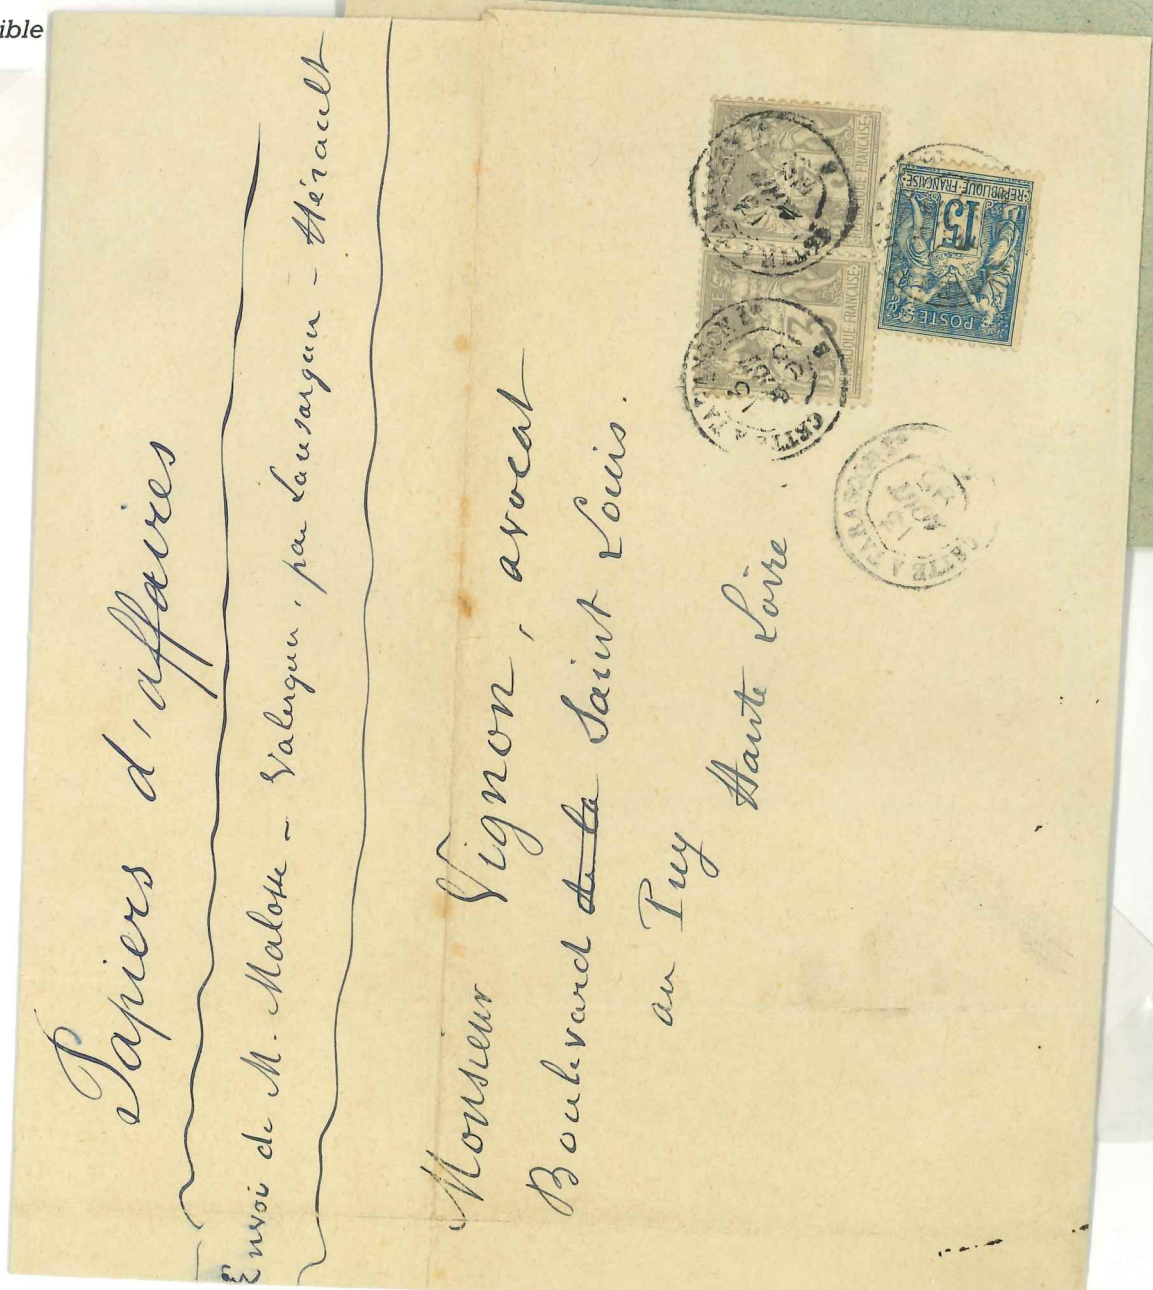 ible
Papiers d'affaires
Envoi de M. Malosse - Valergues, par Lansargues - Hérault
Monsieur Vignon, avocat
Boulevard de la Saint Louis.
au Puy
Haute Loire.
REPUBLIQUE FRANÇAISE
15
POSTES
3
REPUBLIQUE FRANÇAISE
CETTE A TARASCON
CETTE A TARASCON
CETTE A TARASCON